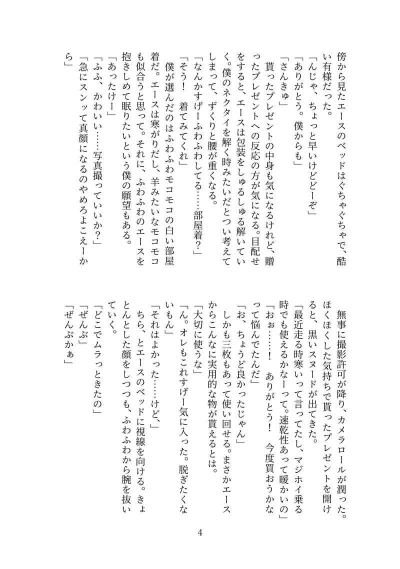 傍から見たエースのベッドはぐちゃぐちゃで、酷
い有様だった。
「んじゃ、ちょっと早いけどどーぞ」
「ありがとう。僕からも」
「さんきゅ」
　貰ったプレゼントの中身も気になるけれど、贈
ったプレゼントへの反応の方が気になる。目配せ
をすると、エースは包装をしゅるしゅる解いてい
く。僕のネクタイを解く時みたいだとつい考えて
しまって、ずくりと腰が重くなる。
「なんかすげーふわふわしてる……部屋着？」
「そう！　着てみてくれ」
　僕が選んだのはふわふわモコモコの白い部屋
着だ。エースは寒がりだし、羊みたいなモコモコ
も似合うと思って。それに、ふわふわのエースを
抱きしめて眠りたいという僕の願望もある。
「あったけー」
「ふふ、かわいい……写真撮っていいか？」
「急にスンッて真顔になるのやめろよこえーか
ら」
　無事に撮影許可が降り、カメラロールが潤った。
ほくほくした気持ちで貰ったプレゼントを開け
ると、黒いスヌードが出てきた。
「最近走る時寒いって言ってたし、マジホイ乗る
時でも使えるかなーって。速乾性あって暖かいの」
「おぉ……！　ありがとう！　今度買おうかな
って悩んでたんだ」
「お、ちょうど良かったじゃん」
　しかも三枚もあって使い回せる。まさかエース
からこんなに実用的な物が貰えるとは。
「大切に使うな」
「ん。オレもこれすげー気に入った。脱ぎたくな
いもん」
「それはよかった……けど、」
　ちら、とエースのベッドに視線を向ける。きょ
とんとした顔をしつつも、ふわふわから腕を抜い
ていく。
「どこでムラっときたの」
「ぜんぶ」
「ぜんぶかぁ」
4